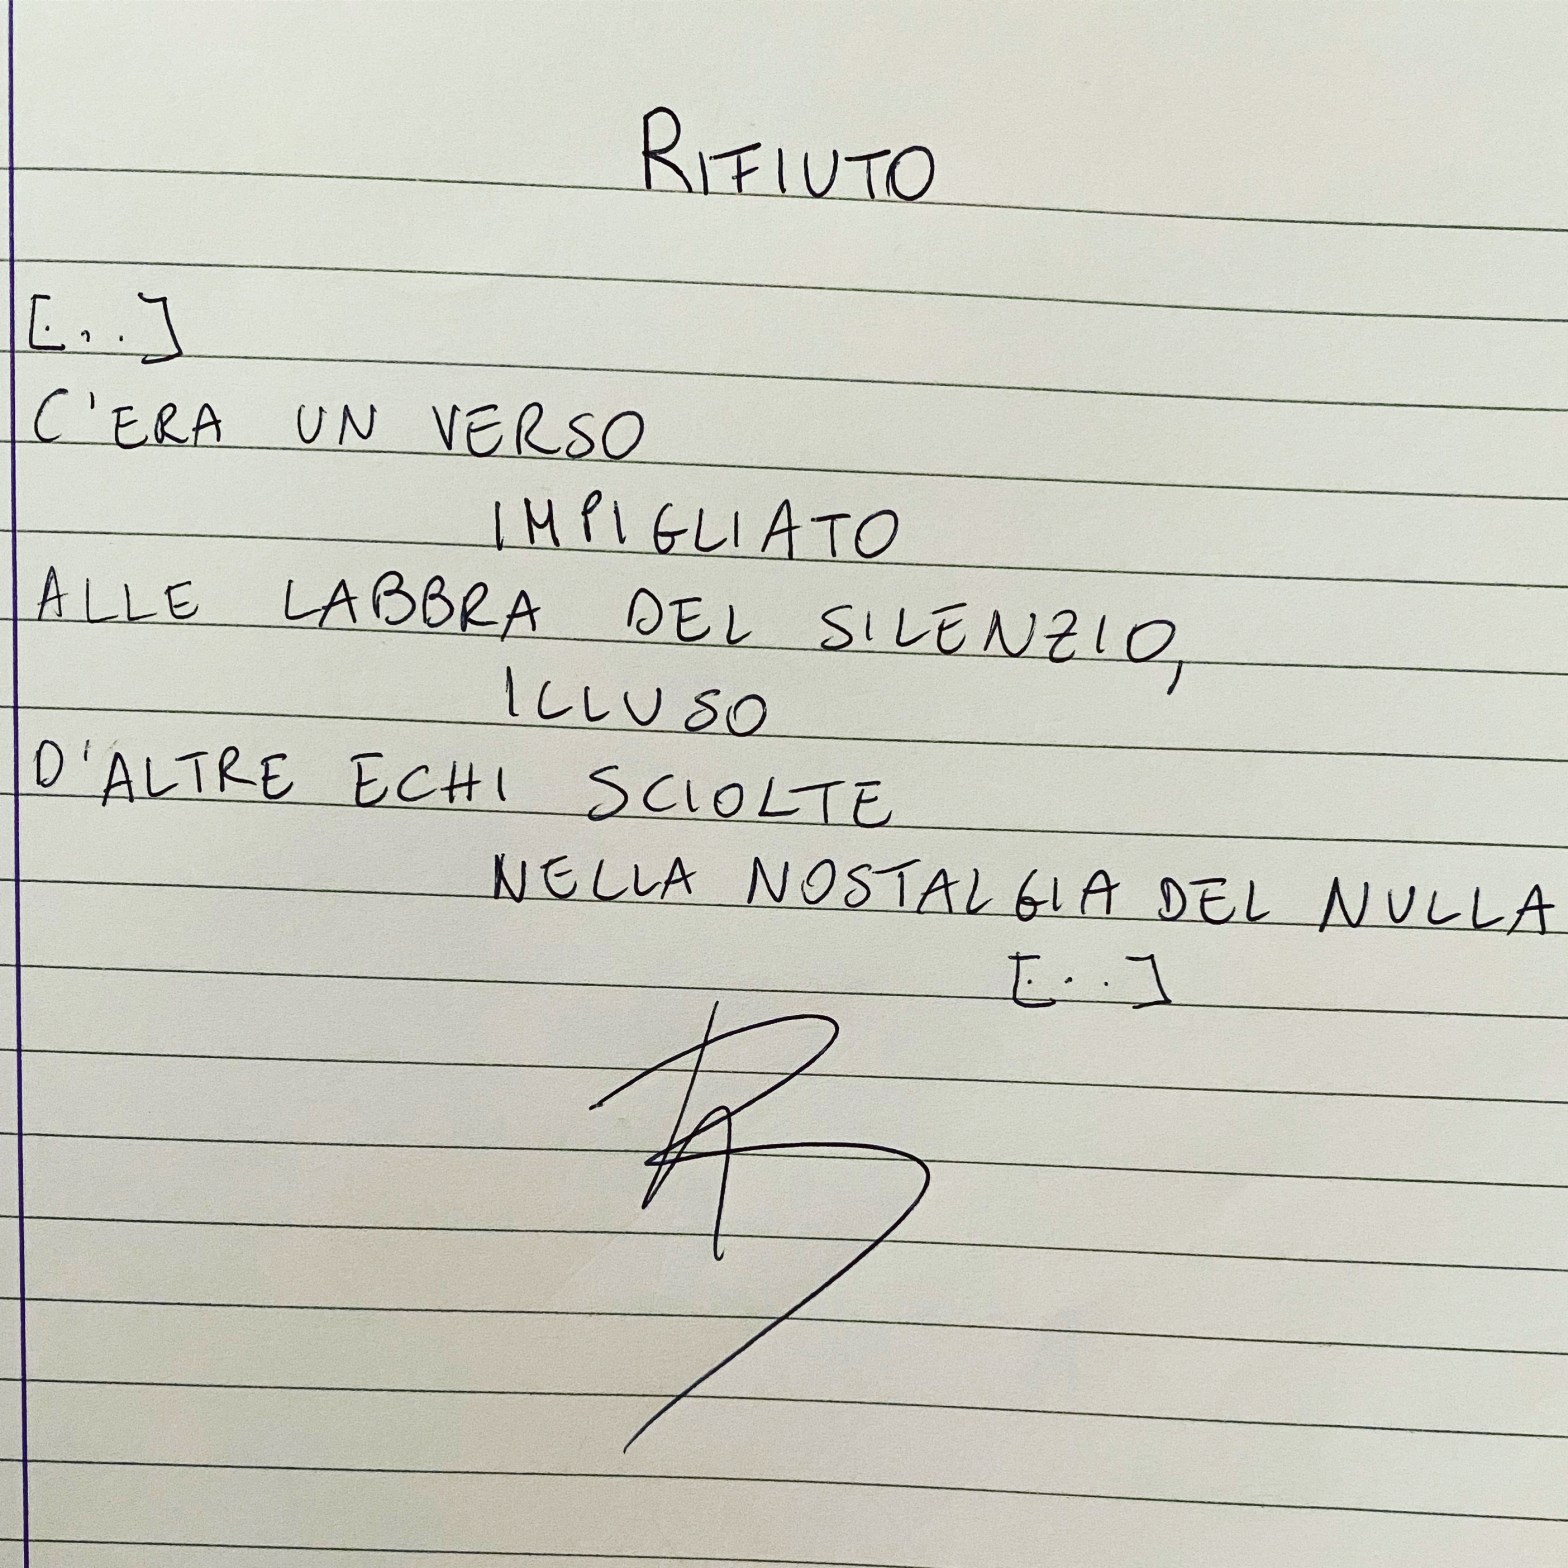 RIFIUTO
[...]
C'ERA UN VERSO
IMPIGLIATO
ALLE LABBRA DEL SILENZIO,
ILLUSO
D'ALTRE ECHI SCIOLTE
NELLA NOSTALGIA DEL NULLA
[...]